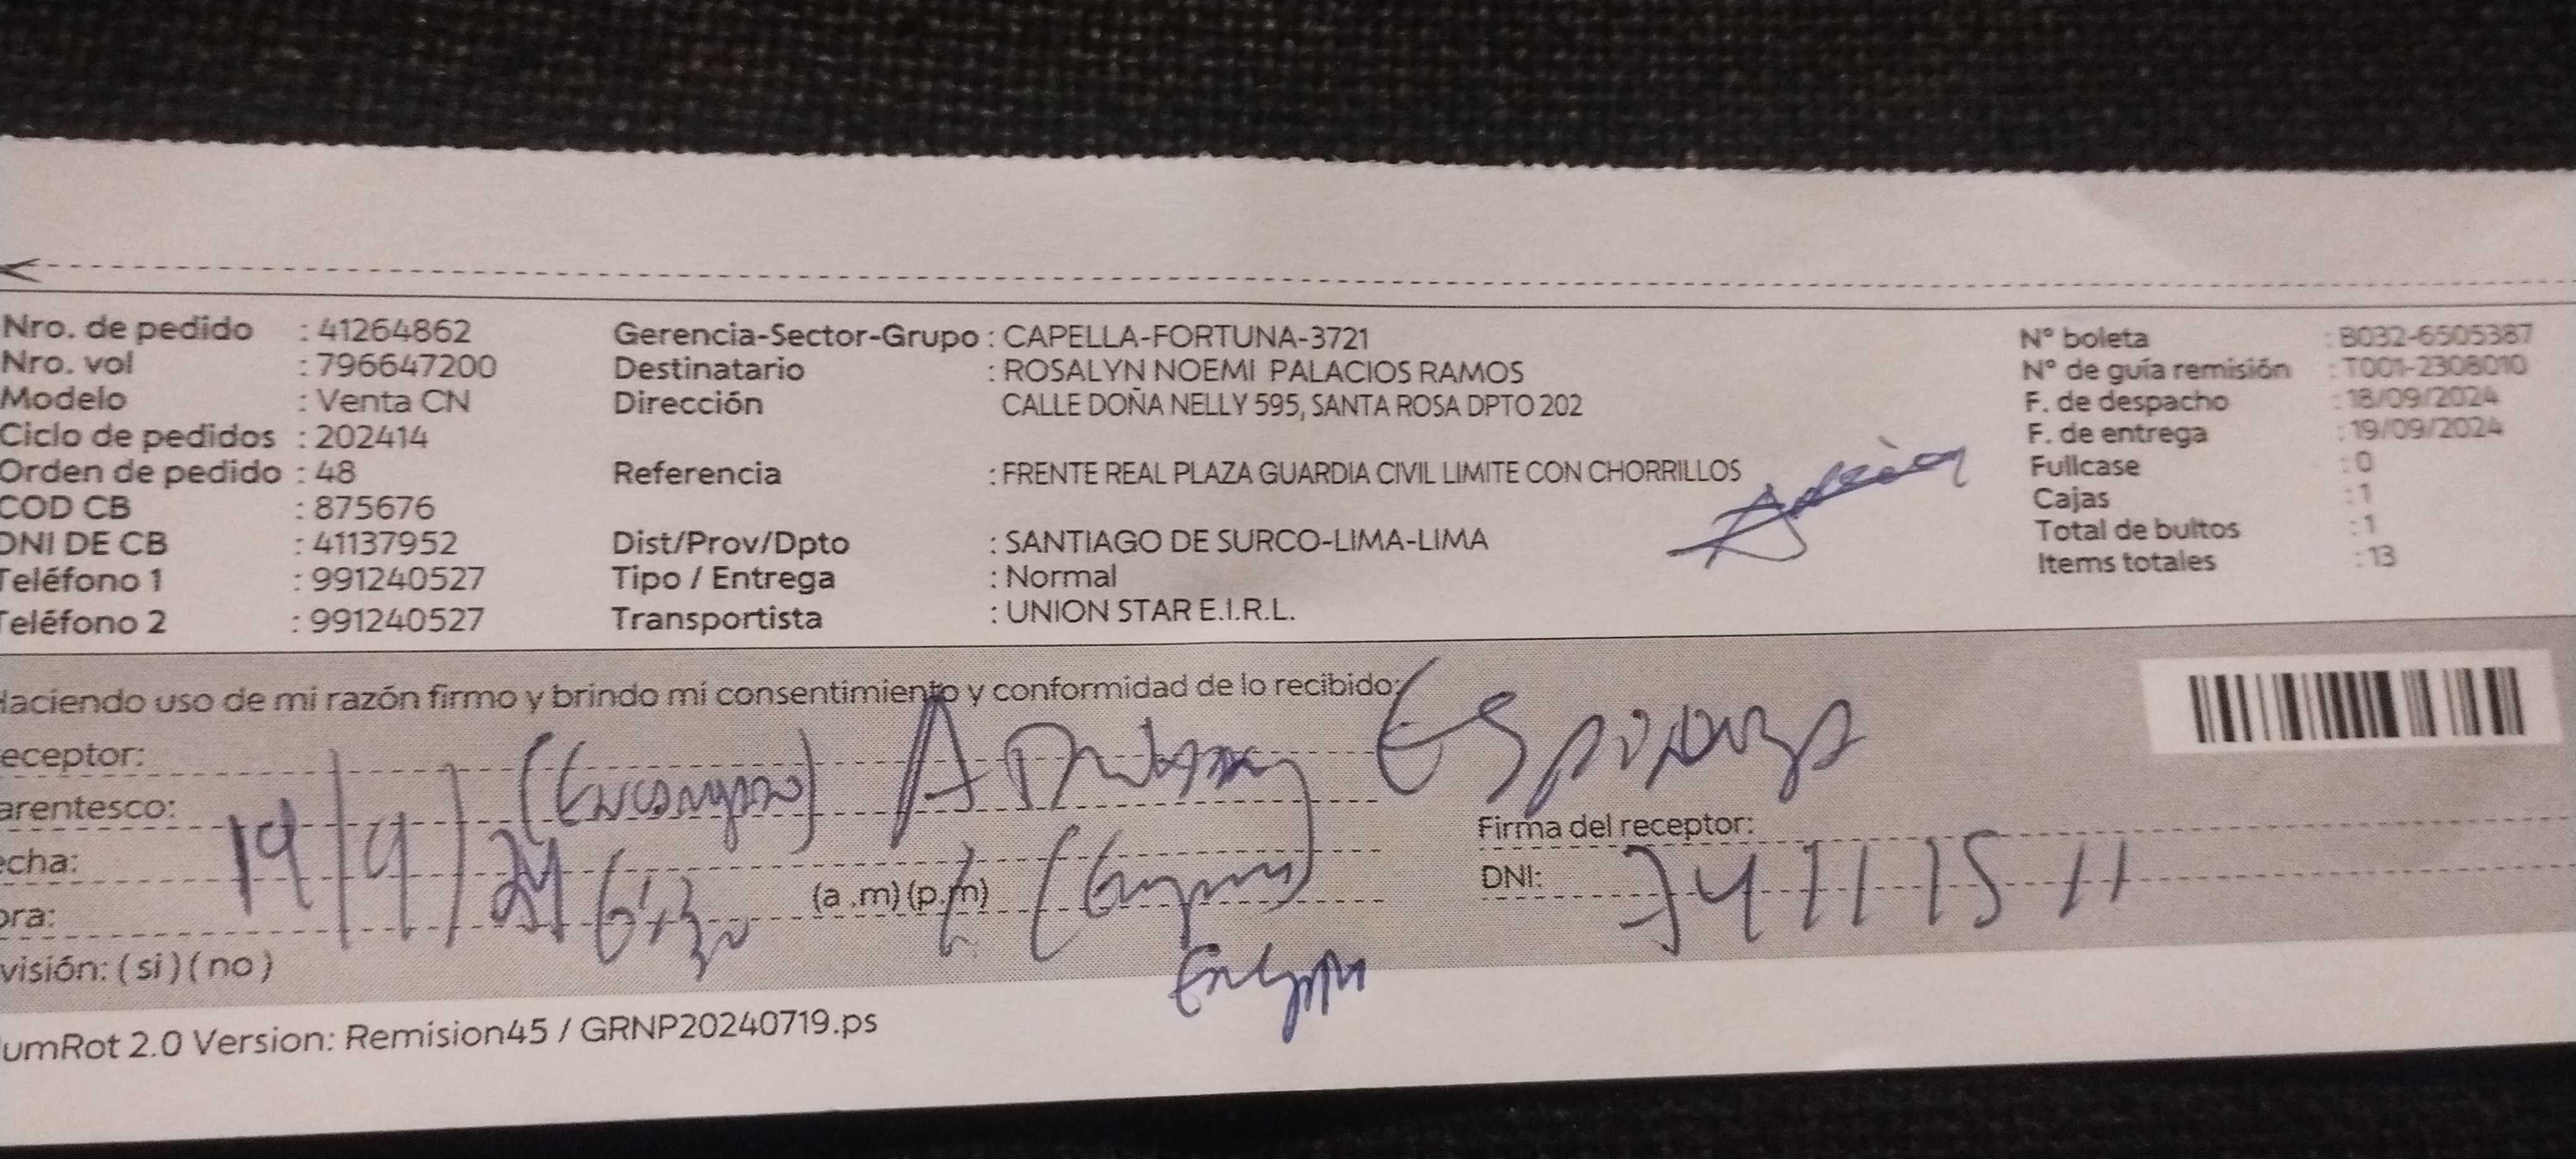 Nro. de pedido : 41264862
Nro. vol : 796647200
Modelo : Venta CN
Ciclo de pedidos : 202414
Orden de pedido : 48
COD CB : 875676
DNI DE CB : 41137952
Teléfono 1 : 991240527
Teléfono 2 : 991240527
Gerencia-Sector-Grupo : CAPELLA-FORTUNA-3721
Destinatario : ROSALYN NOEMI PALACIOS RAMOS
Dirección CALLE DOÑA NELLY 595, SANTA ROSA DPTO 202
Referencia : FRENTE REAL PLAZA GUARDIA CIVIL LIMITE CON CHORRILLOS
Dist/Prov/Dpto : SANTIAGO DE SURCO-LIMA-LIMA
Tipo / Entrega : Normal
Transportista : UNION STAR E.I.R.L.
N° boleta : B032-6505387
N° de guía remisión : T001-2308010
F. de despacho : 18/09/2024
F. de entrega : 19/09/2024
Fullcase : 0
Cajas : 1
Total de bultos : 1
Items totales : 13
Haciendo uso de mi razón firmo y brindo mi consentimiento y conformidad de lo recibido:
eceptor:
arentesco:
echa: 19/9/24
ora: (a .m) (p.m)
visión: ( si ) ( no )
Firma del receptor:
DNI:
umRot 2.0 Version: Remision45 / GRNP20240719.ps